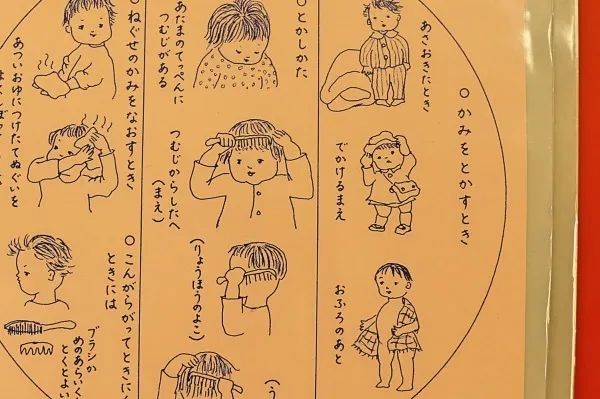 ○かみをとかすとき
あさおきたとき
でかけるまえ
おふろのあと
○とかしかた
あたまのてっぺんに
つむじがある
つむじからしたへ
(まえ)
(りょうほうのよこ)
○ねぐせのかみをなおすとき
あついおゆにつけたてぬぐいを
○こんがらがってときにく
ときには
ブラシか
めのあらいく
とくとよい